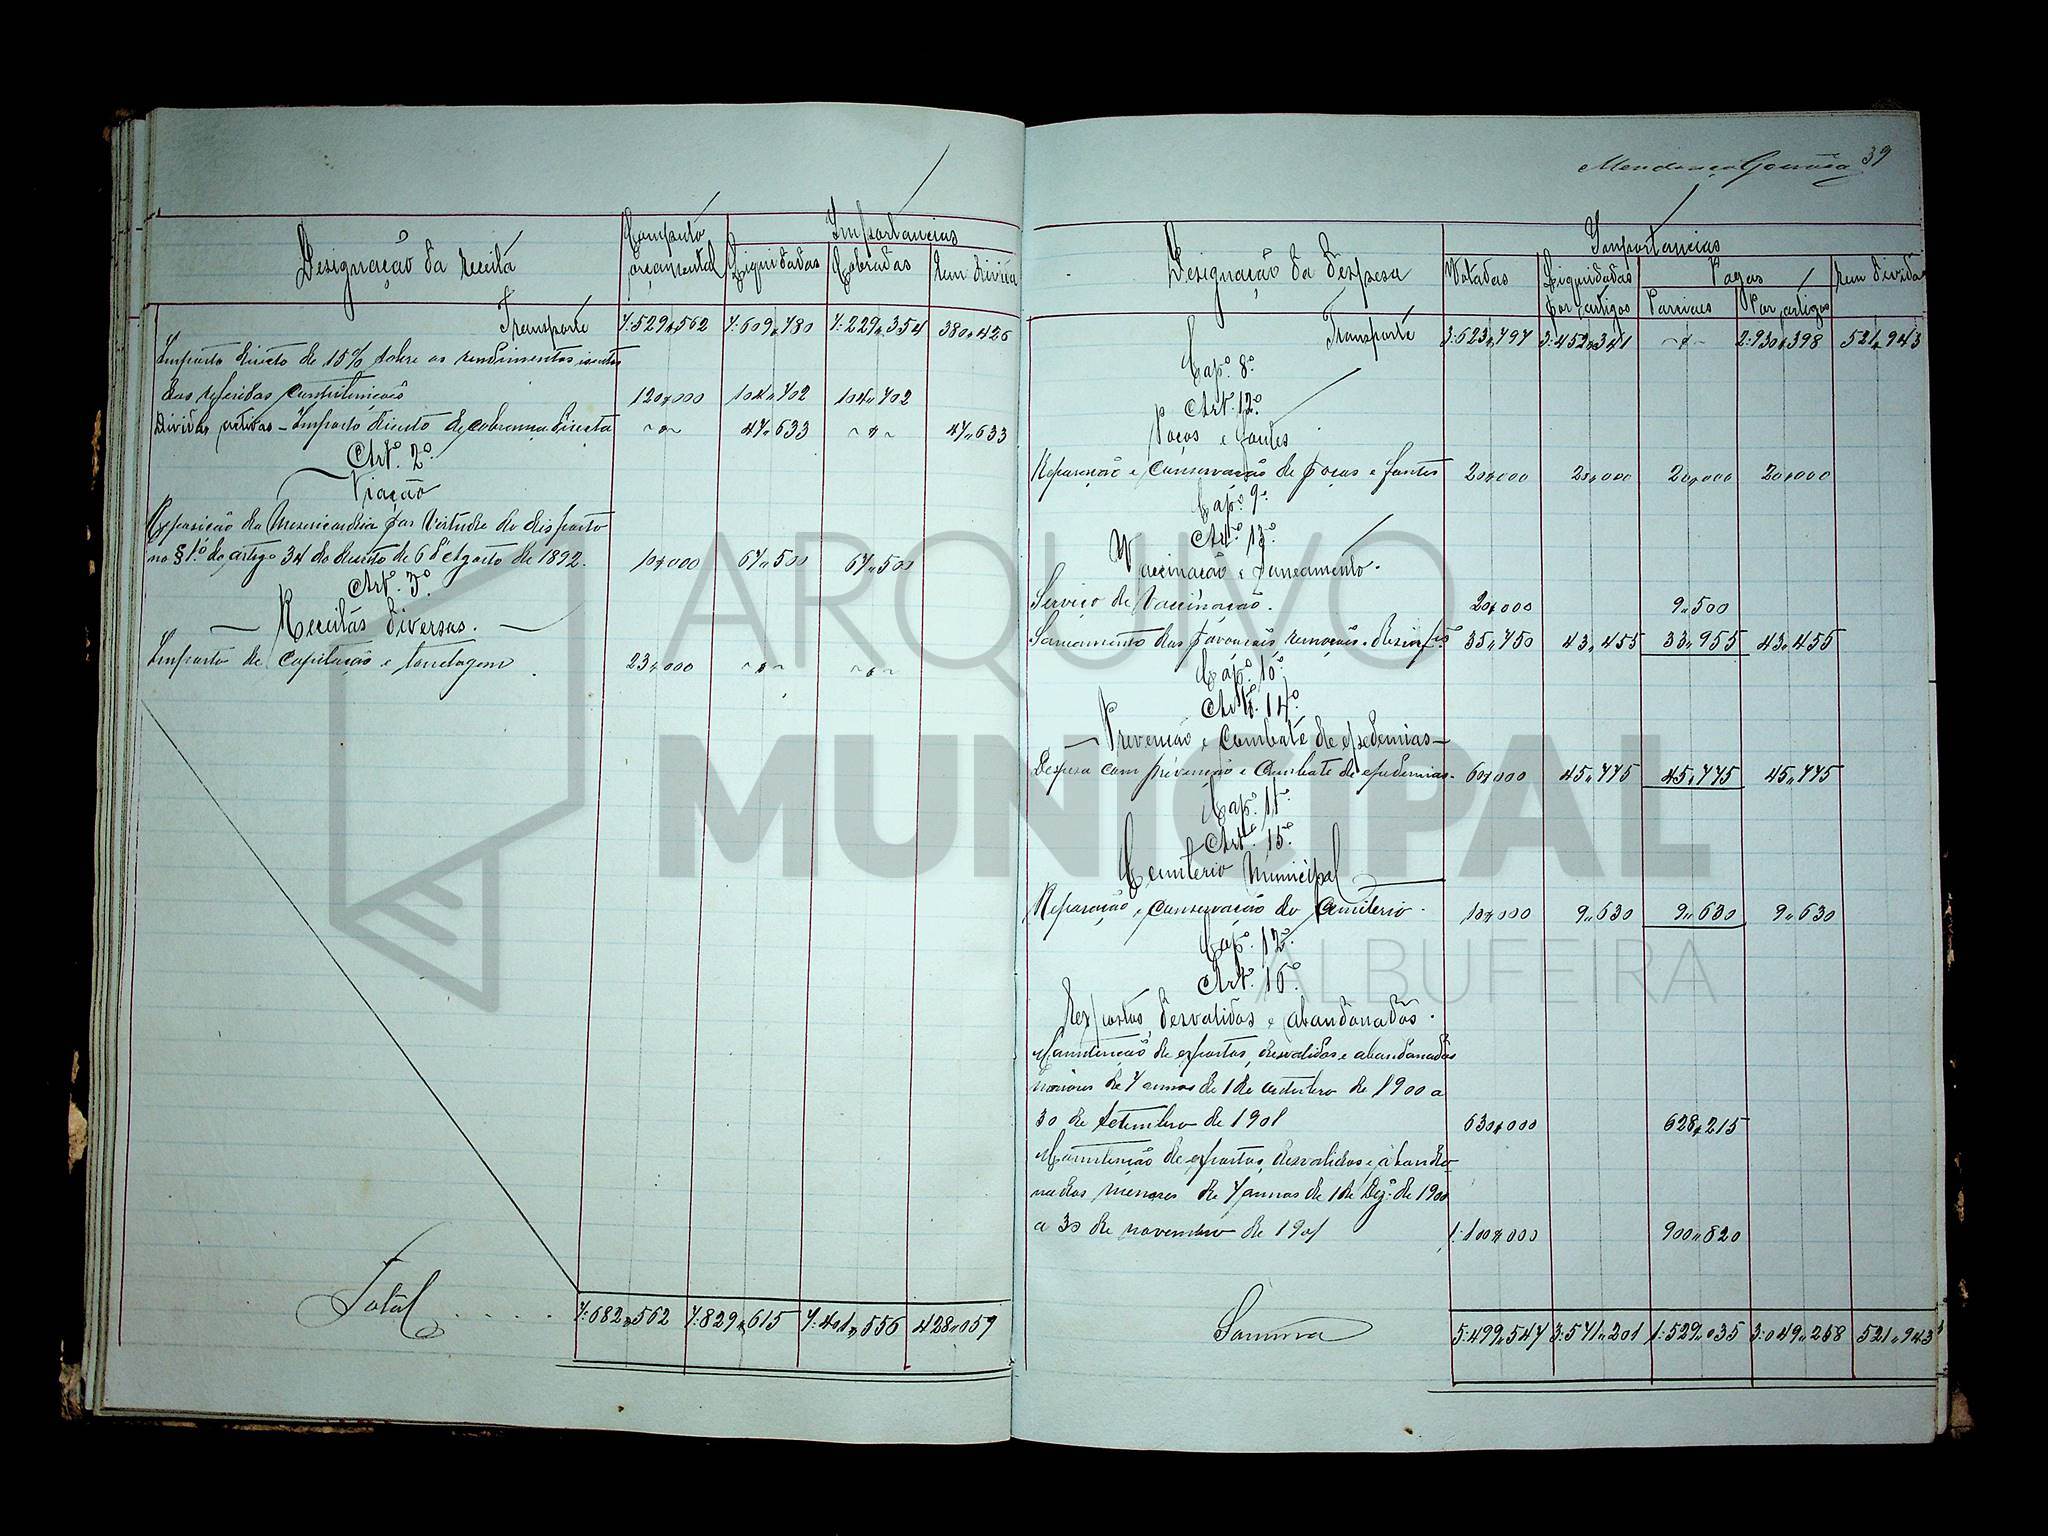 Designação da receita
Computo orçamental
Importancias
Liquidadas
Cobradas
Em divida
Transporte 7:529,562 7:609,780 7:229,354 380,426
Imposto directo de 15% sobre os rendimentos isentos
das referidas contribuições 120,000 104,702 104,702
Dividas activas - Imposto directo de cobrança directa ~"~ 47,633 ~"~ 47,633
Art.º 2º
Viação
do Misericordia por Virtude do disposto
no § 1.º do artigo 34 do decreto de 6 d'Agosto de 1892. 10,000 67,500 67,500
Art.º 3º
Receitas diversas.
Imposto de capitação e tonelagem 23,000 ~"~ ~"~
Total 7:682,562 7:829,615 7:401,556 428,059
Mendonça Gouvêa 39
Designação da despesa
Importancias
Votadas
Liquidadas por artigos
Pagas
Parciaes
Por artigos
Em divida
Transporte 3:623,797 3:452,341 ~"~ 2:930,398 521,943
Cap.º 8º
Art. 12º
Poços e fontes
Reparação e conservação de poços e fontes 20,000 20,000 20,000 20,000
Cap.º 9º
Art.º 13º
Vaccinação e saneamento.
Serviço de Vaccinação. 20,000 9,500
Saneamento das povoações, remoções e desinfec 35,750 43,455 33,955 43,455
Cap.º 10º
Art.º 14º
Prevenção e combate de epedemias
Despesa com prevenção e combate de epedemias. 60,000 45,775 45,775 45,775
Cap.º 11º
Art.º 15º
Cemiterio Municipal
Reparação e conservação do Cemiterio. 10,000 9,630 9,630 9,630
Cap.º 12º
Art.º 16º
Expostos, desvalidos e abandonados.
Manutenção de expostos, desvalidos e abandonados
de 7 annos de 1 de outubro de 1900 a
30 de setembro de 1901 630,000 628,215
Manutenção de expostos, desvalidos e abando-
nados menores de 7 annos de 1 de Dezº de 1900
a 30 de novembro de 1901 1:100,000 900,820
Somma 5:499,547 3:571,201 1:529,035 3:049,258 521,943
ARQUIVO
MUNICIPAL
ALBUFEIRA